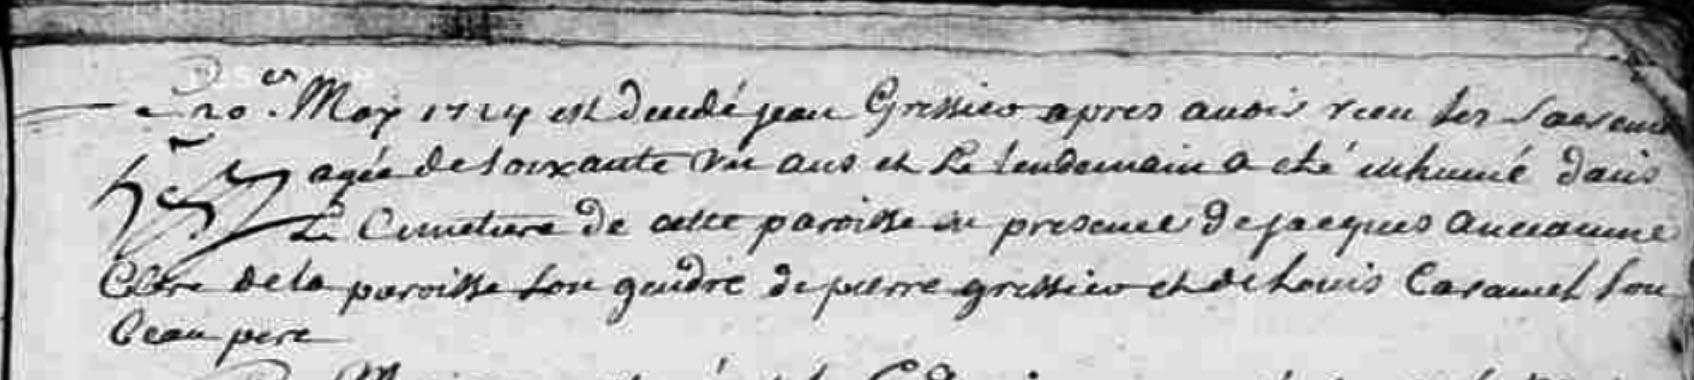 Le 20.e May 1724 est decedé jean Gressier apres avoir receu les Sacremens
agée de soixante un ans et Le lendemain a eté inhumé dans
Le Cimetiere de cette paroisse en presence de jacques
Clerc de la paroisse son gendre de pierre gressier et de Louis Caramel son
beau pere